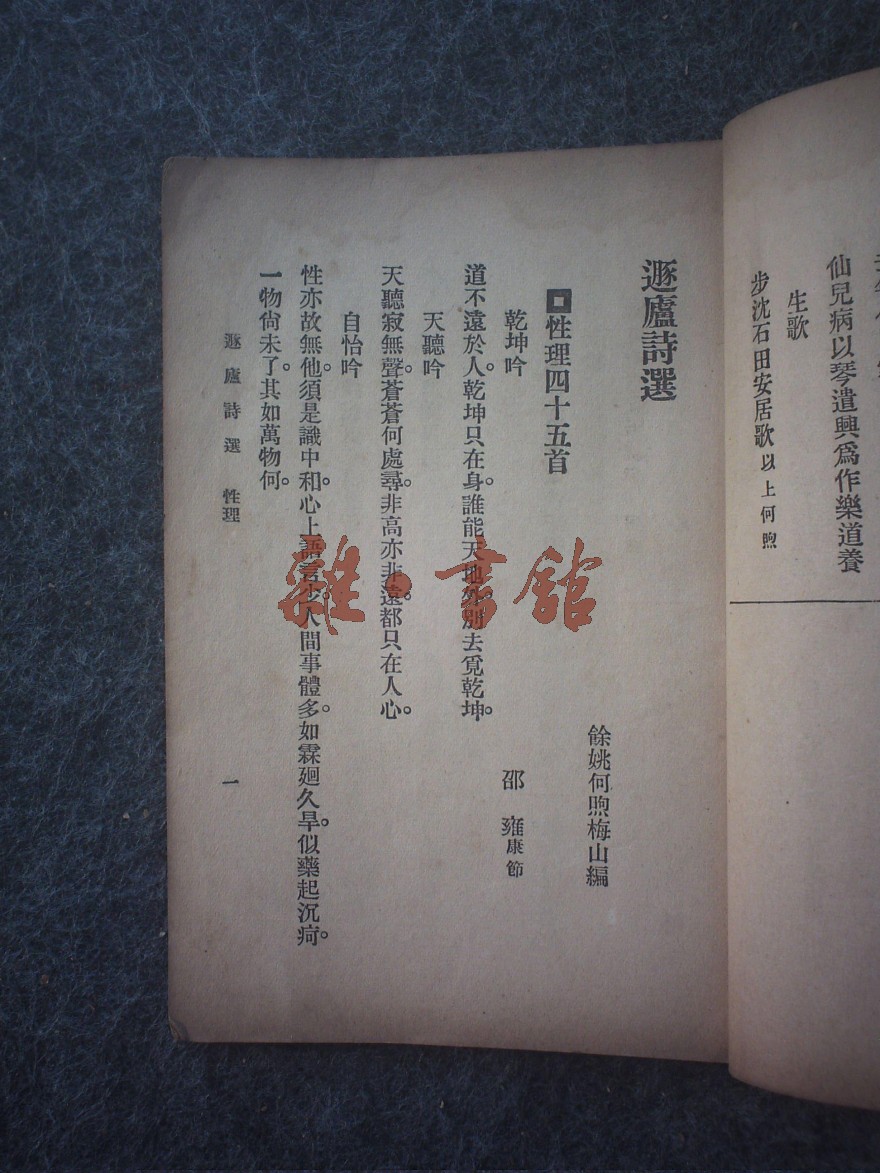 仙兒病以琴遣興爲作樂道養
生歌
步沈石田安居歌以上何煦
遯廬詩選
餘姚何煦梅山編
性理四十五首
乾坤吟 邵雍康節
道不遠於人。乾坤只在身。誰能天地外。別去覓乾坤。
天聽吟
天聽寂無聲。蒼蒼何處尋。非高亦非遠。都只在人心。
自怡吟
性亦故無他。須是識中和。心上語言少。人間事體多。如霖廻久旱。似藥起沉疴。
一物尙未了。其如萬物何。
遯廬詩選 性理 一
雜·書館